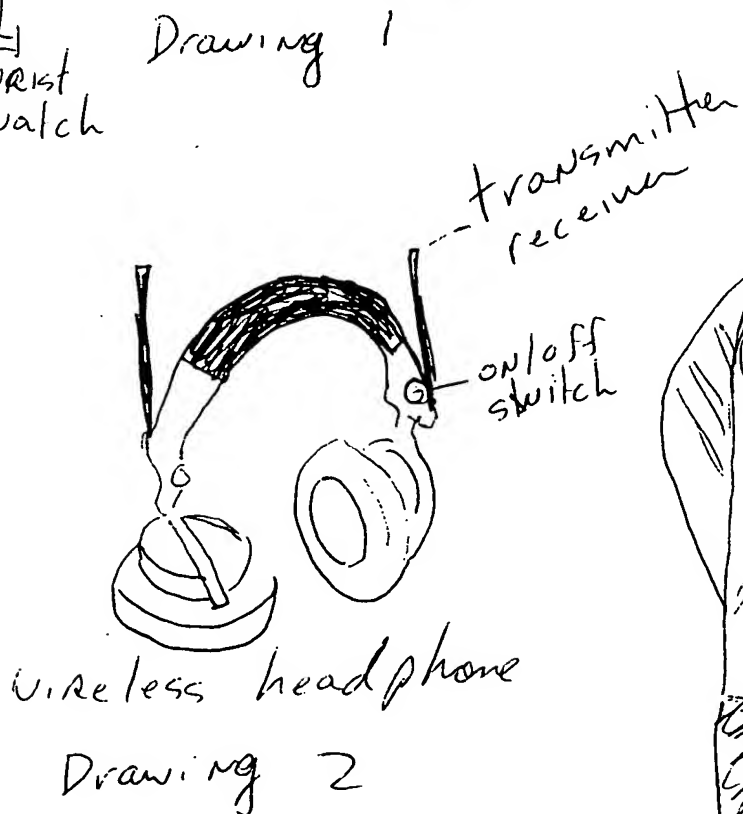 Drawing 1
wrist
watch
transmitter
receiver
on/off
switch
wireless headphone
Drawing 2